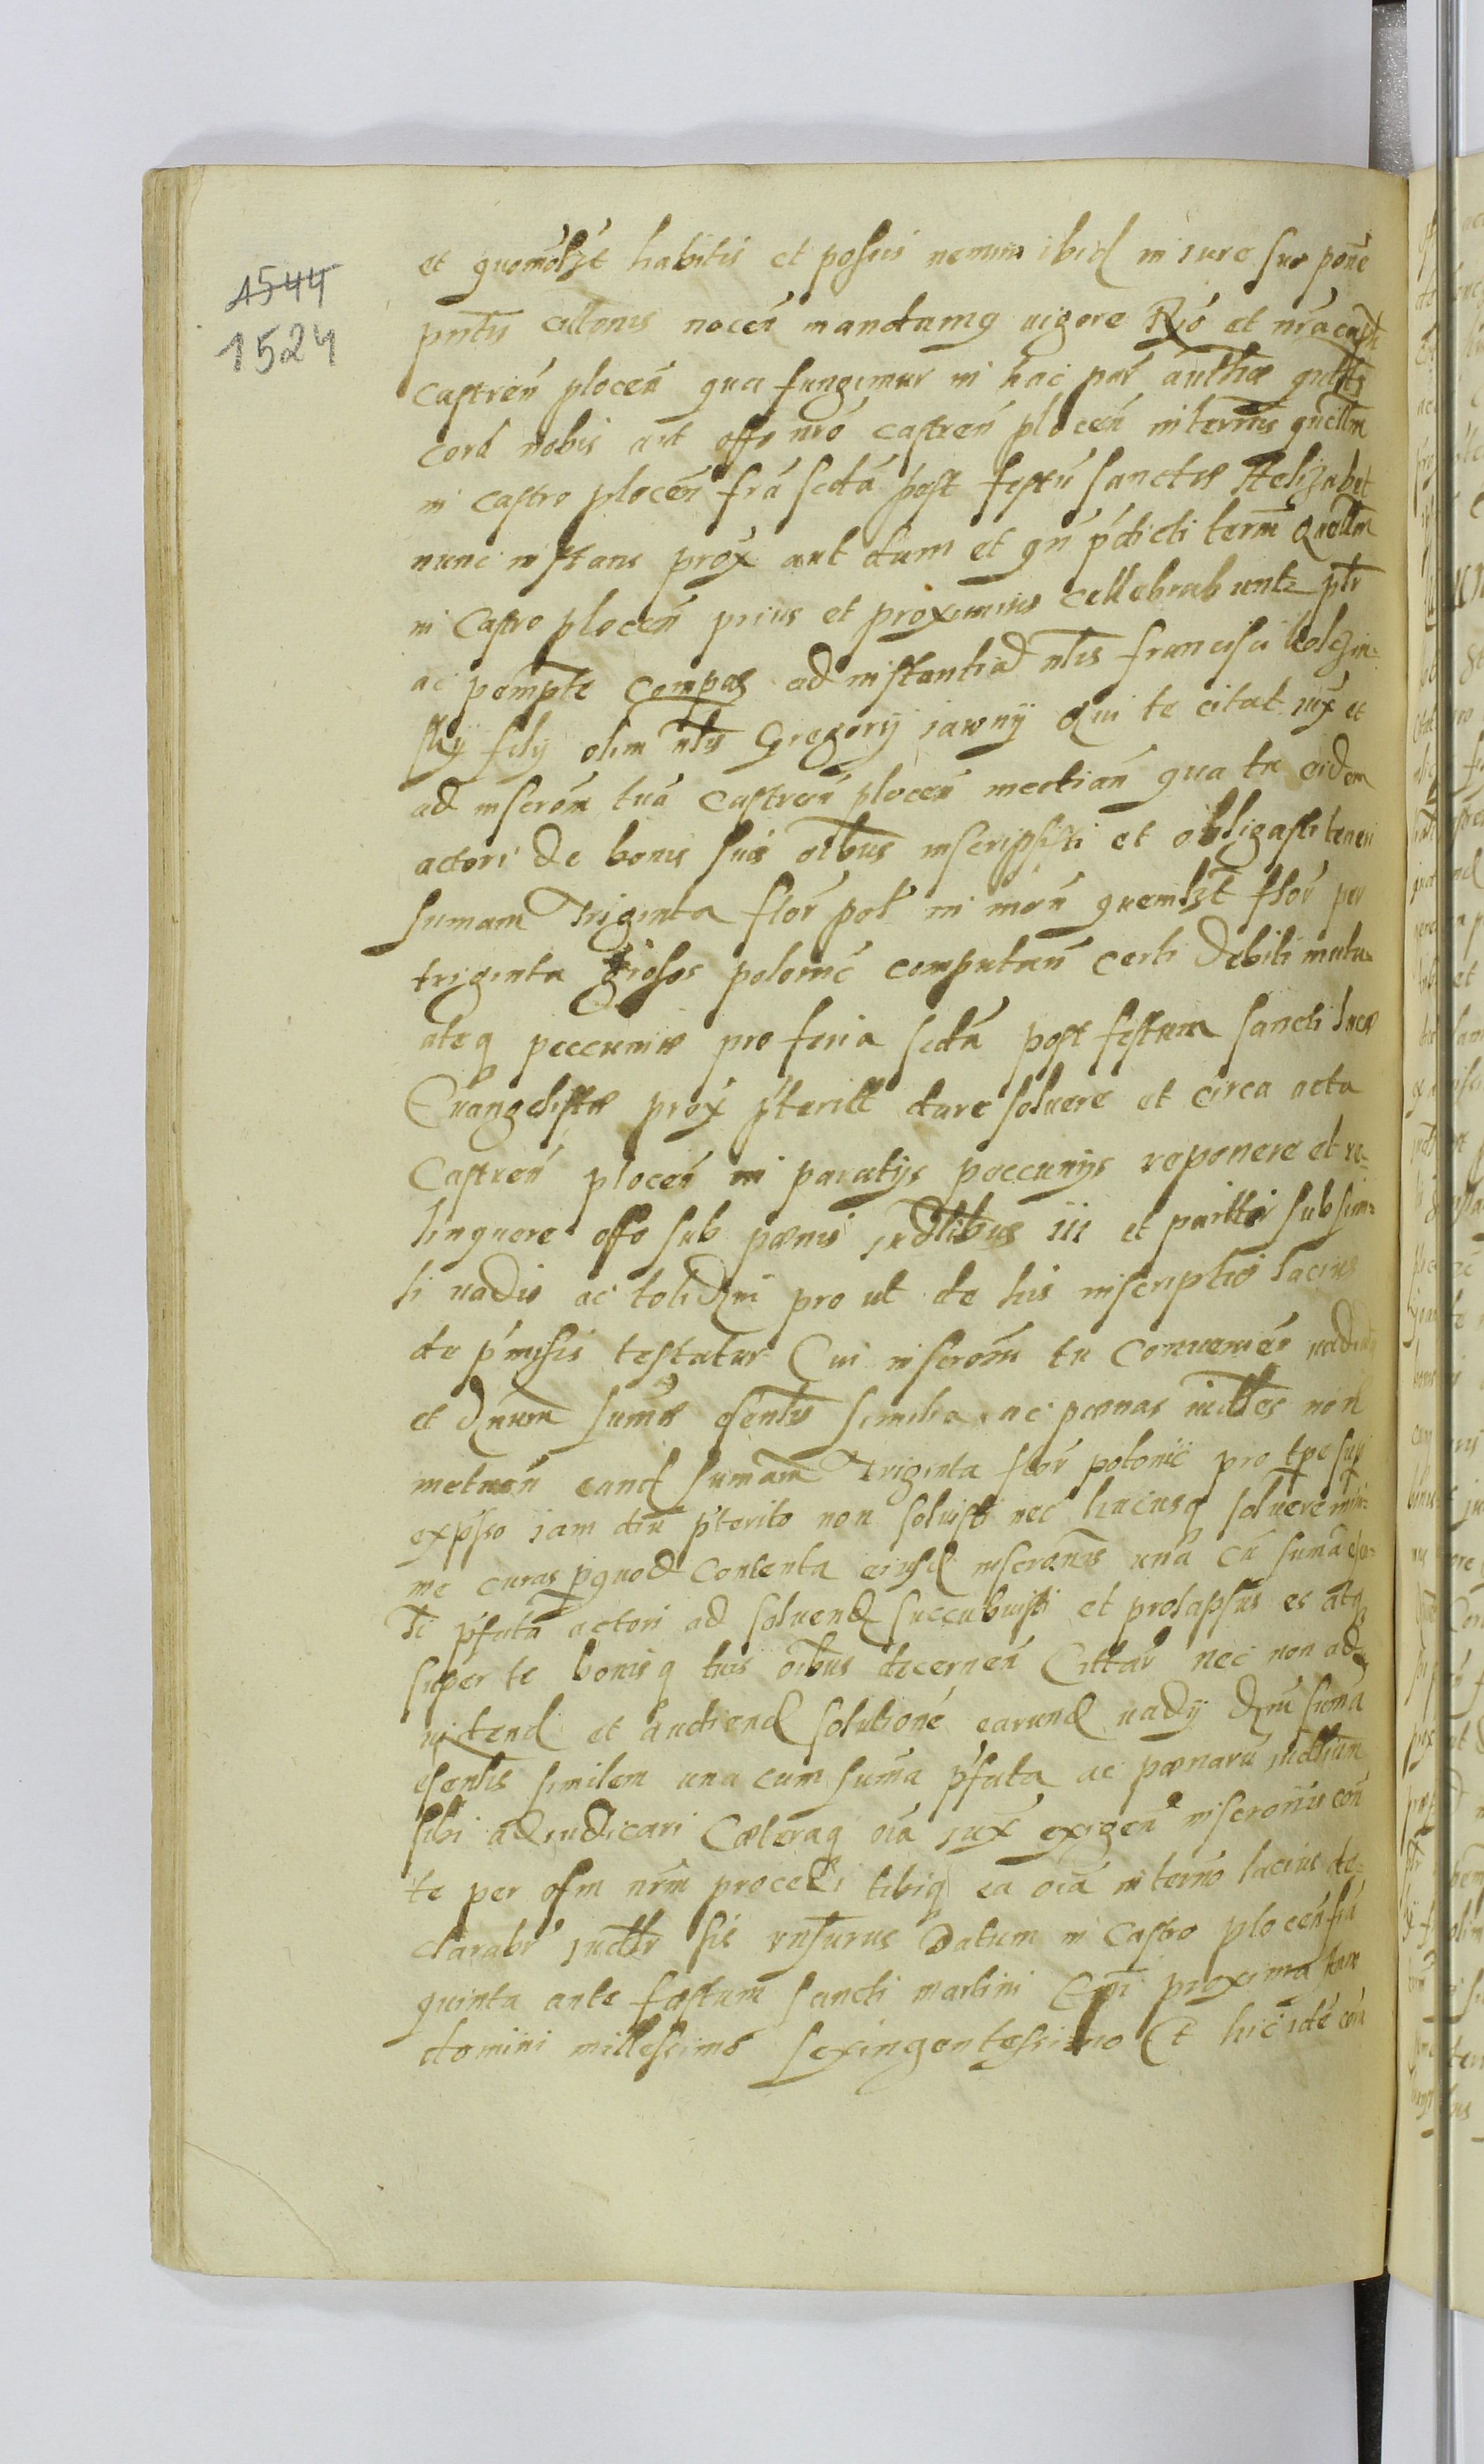 1544
1524
et quomolzt habitis et possis nemini ibid in iure suo
pntis cittonis nocen mandamq vigore Rio et nra
castren plocen qua fungimur in hac par authæ qutts
cord nobis aut offo nro castren plocen in termis qrellm
in castro plocen fra scda post festu sanctæ Helizabet
nunc instans prox aut dum et qn pdicti term Quellm
in Castro plocen prius et proximius cellebrabuntr ptr
ac pempte compas ad instantiad nlis francisci bolzim-
skij filij olim nlis Gregorij iawnij Qui te citat iux et
ad inscrom tua castren plocen mectian qua tu eidem
actori de bonis suis oibus inscripsisti et obligasti teneri
sumam Triginta flor pol in mon quemlzt flor per
triginta grosos polonic computan certi debiti mutu-
ateq peccuniæ pro feria scda post festum sancti lucæ
Euangelistæ prox pterill dare soluere et circa acta
Castren plocen in paratijs peccunijs reponere et re-
linquere offo sub pænis iudlibus iii et parilter sub simi-
li vadio ac tolidzni pro ut de his inscriptio lacius
de pmisis testatur Cui inscrom tu contraveniens
et dnum sumæ esentis similia ac pænas iudlles non
metuen eand sumam Triginta flor polonic pro tpe sup
expsso iam diu pterito non soluisti nec hucusq soluere mini-
me curas pquod contenta eiusd inscronis una cu suma esen-
ti pfata actori ad soluend succubuisti et prolapsus es atq
super te bonisq tuis oibus decernen Cittar nec non ad
videnđ et audiend solutione earund vadij dnu suma
esentis similem una cum suma pfata ac pænaru iudlium
sibi adiudicari Cæteraq oia iux exigen inscronis con
te per ofm nrm procedi tibiq ea oia in termo lacius de-
clarabr iudlr sis rnsurus Datum in castro plocen fia
quinta ante festum sancti martini Epi proxima
domini millessimo sexingentessimo Et hic ide con